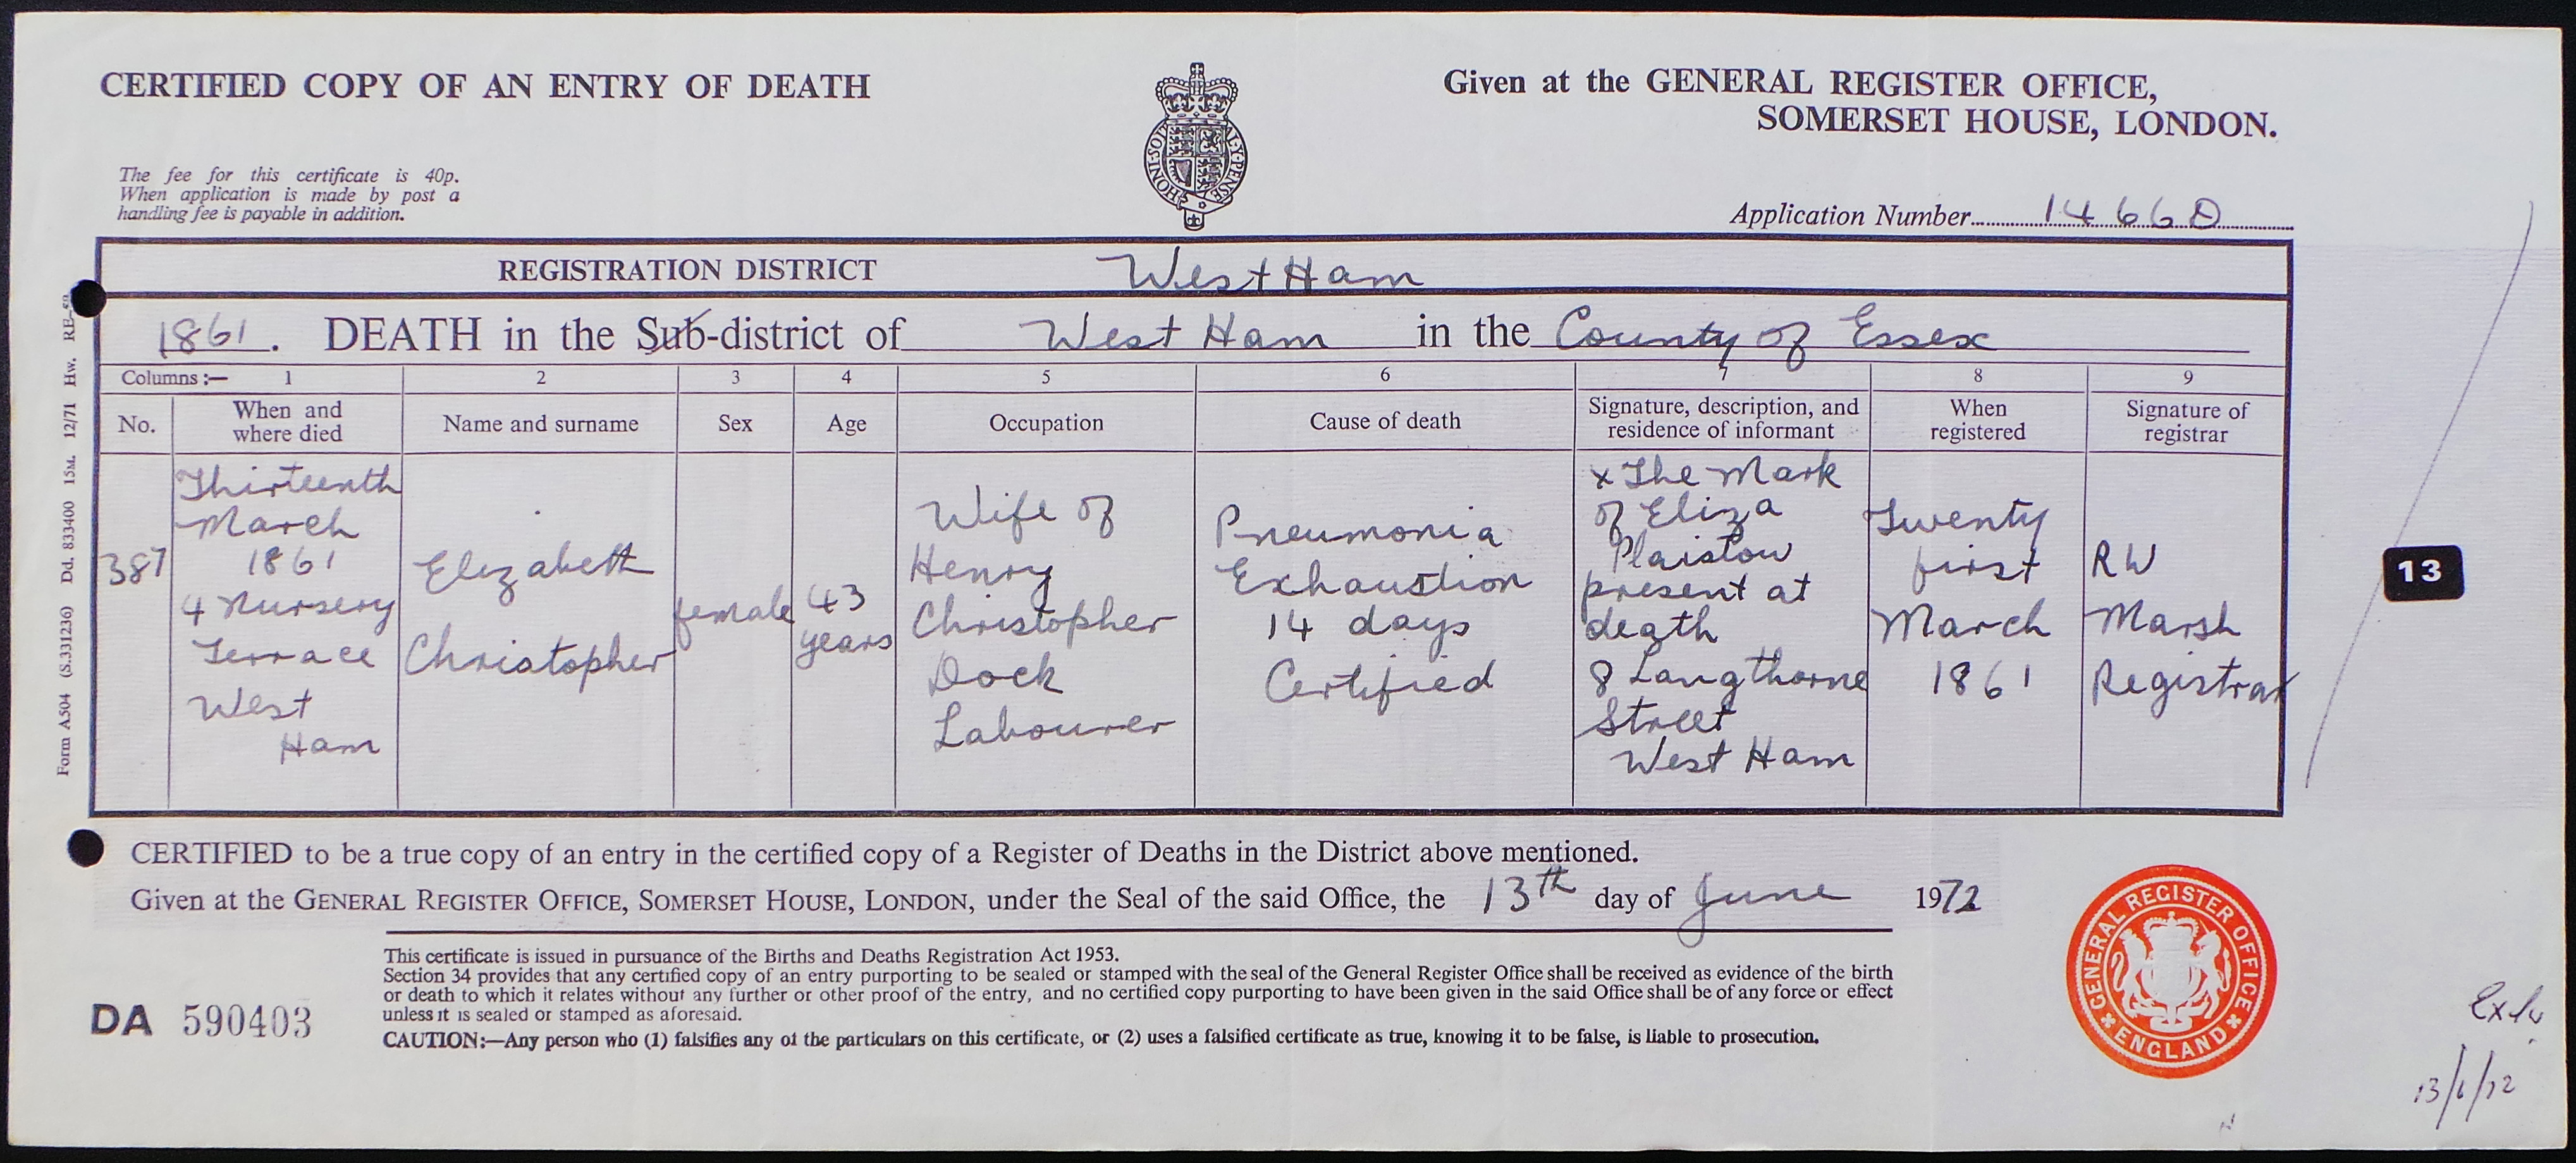 CERTIFIED COPY OF AN ENTRY OF DEATH
Given at the GENERAL REGISTER OFFICE,
SOMERSET HOUSE, LONDON.
The fee for this certificate is 40p.
When application is made by post a
handling fee is payable in addition.
HONI·SOIT
AL·Y·PENSE
Application Number 1466D
REGISTRATION DISTRICT West Ham
1861. DEATH in the Sub-district of West Ham in the County of Essex
Columns :— 1 2 3 4 5 6 7 8 9
No.
When and
where died
Name and surname
Sex
Age
Occupation
Cause of death
Signature, description, and
residence of informant
When
registered
Signature of
registrar
387
Thirteenth
March
1861
4 Nursery
Terrace
West
Ham
Elizabeth
Christopher
female
43
years
Wife of
Henry
Christopher
Dock
Labourer
Pneumonia
Exhaustion
14 days
Certified
x The Mark
of Eliza
Plaistow
present at
death
8 Langthorne
Street
West Ham
Twenty
first
March
1861
RW
Marsh
Registrar
13
Form A504 (S.331236) Dd. 833400 15M. 12/71 Hw.
CERTIFIED to be a true copy of an entry in the certified copy of a Register of Deaths in the District above mentioned.
Given at the GENERAL REGISTER OFFICE, SOMERSET HOUSE, LONDON, under the Seal of the said Office, the 13th day of June 1972
This certificate is issued in pursuance of the Births and Deaths Registration Act 1953.
Section 34 provides that any certified copy of an entry purporting to be sealed or stamped with the seal of the General Register Office shall be received as evidence of the birth
or death to which it relates without any further or other proof of the entry, and no certified copy purporting to have been given in the said Office shall be of any force or effect
unless it is sealed or stamped as aforesaid.
CAUTION:—Any person who (1) falsifies any of the particulars on this certificate, or (2) uses a falsified certificate as true, knowing it to be false, is liable to prosecution.
DA 590403
GENERAL REGISTER OFFICE
ENGLAND
13/6/72